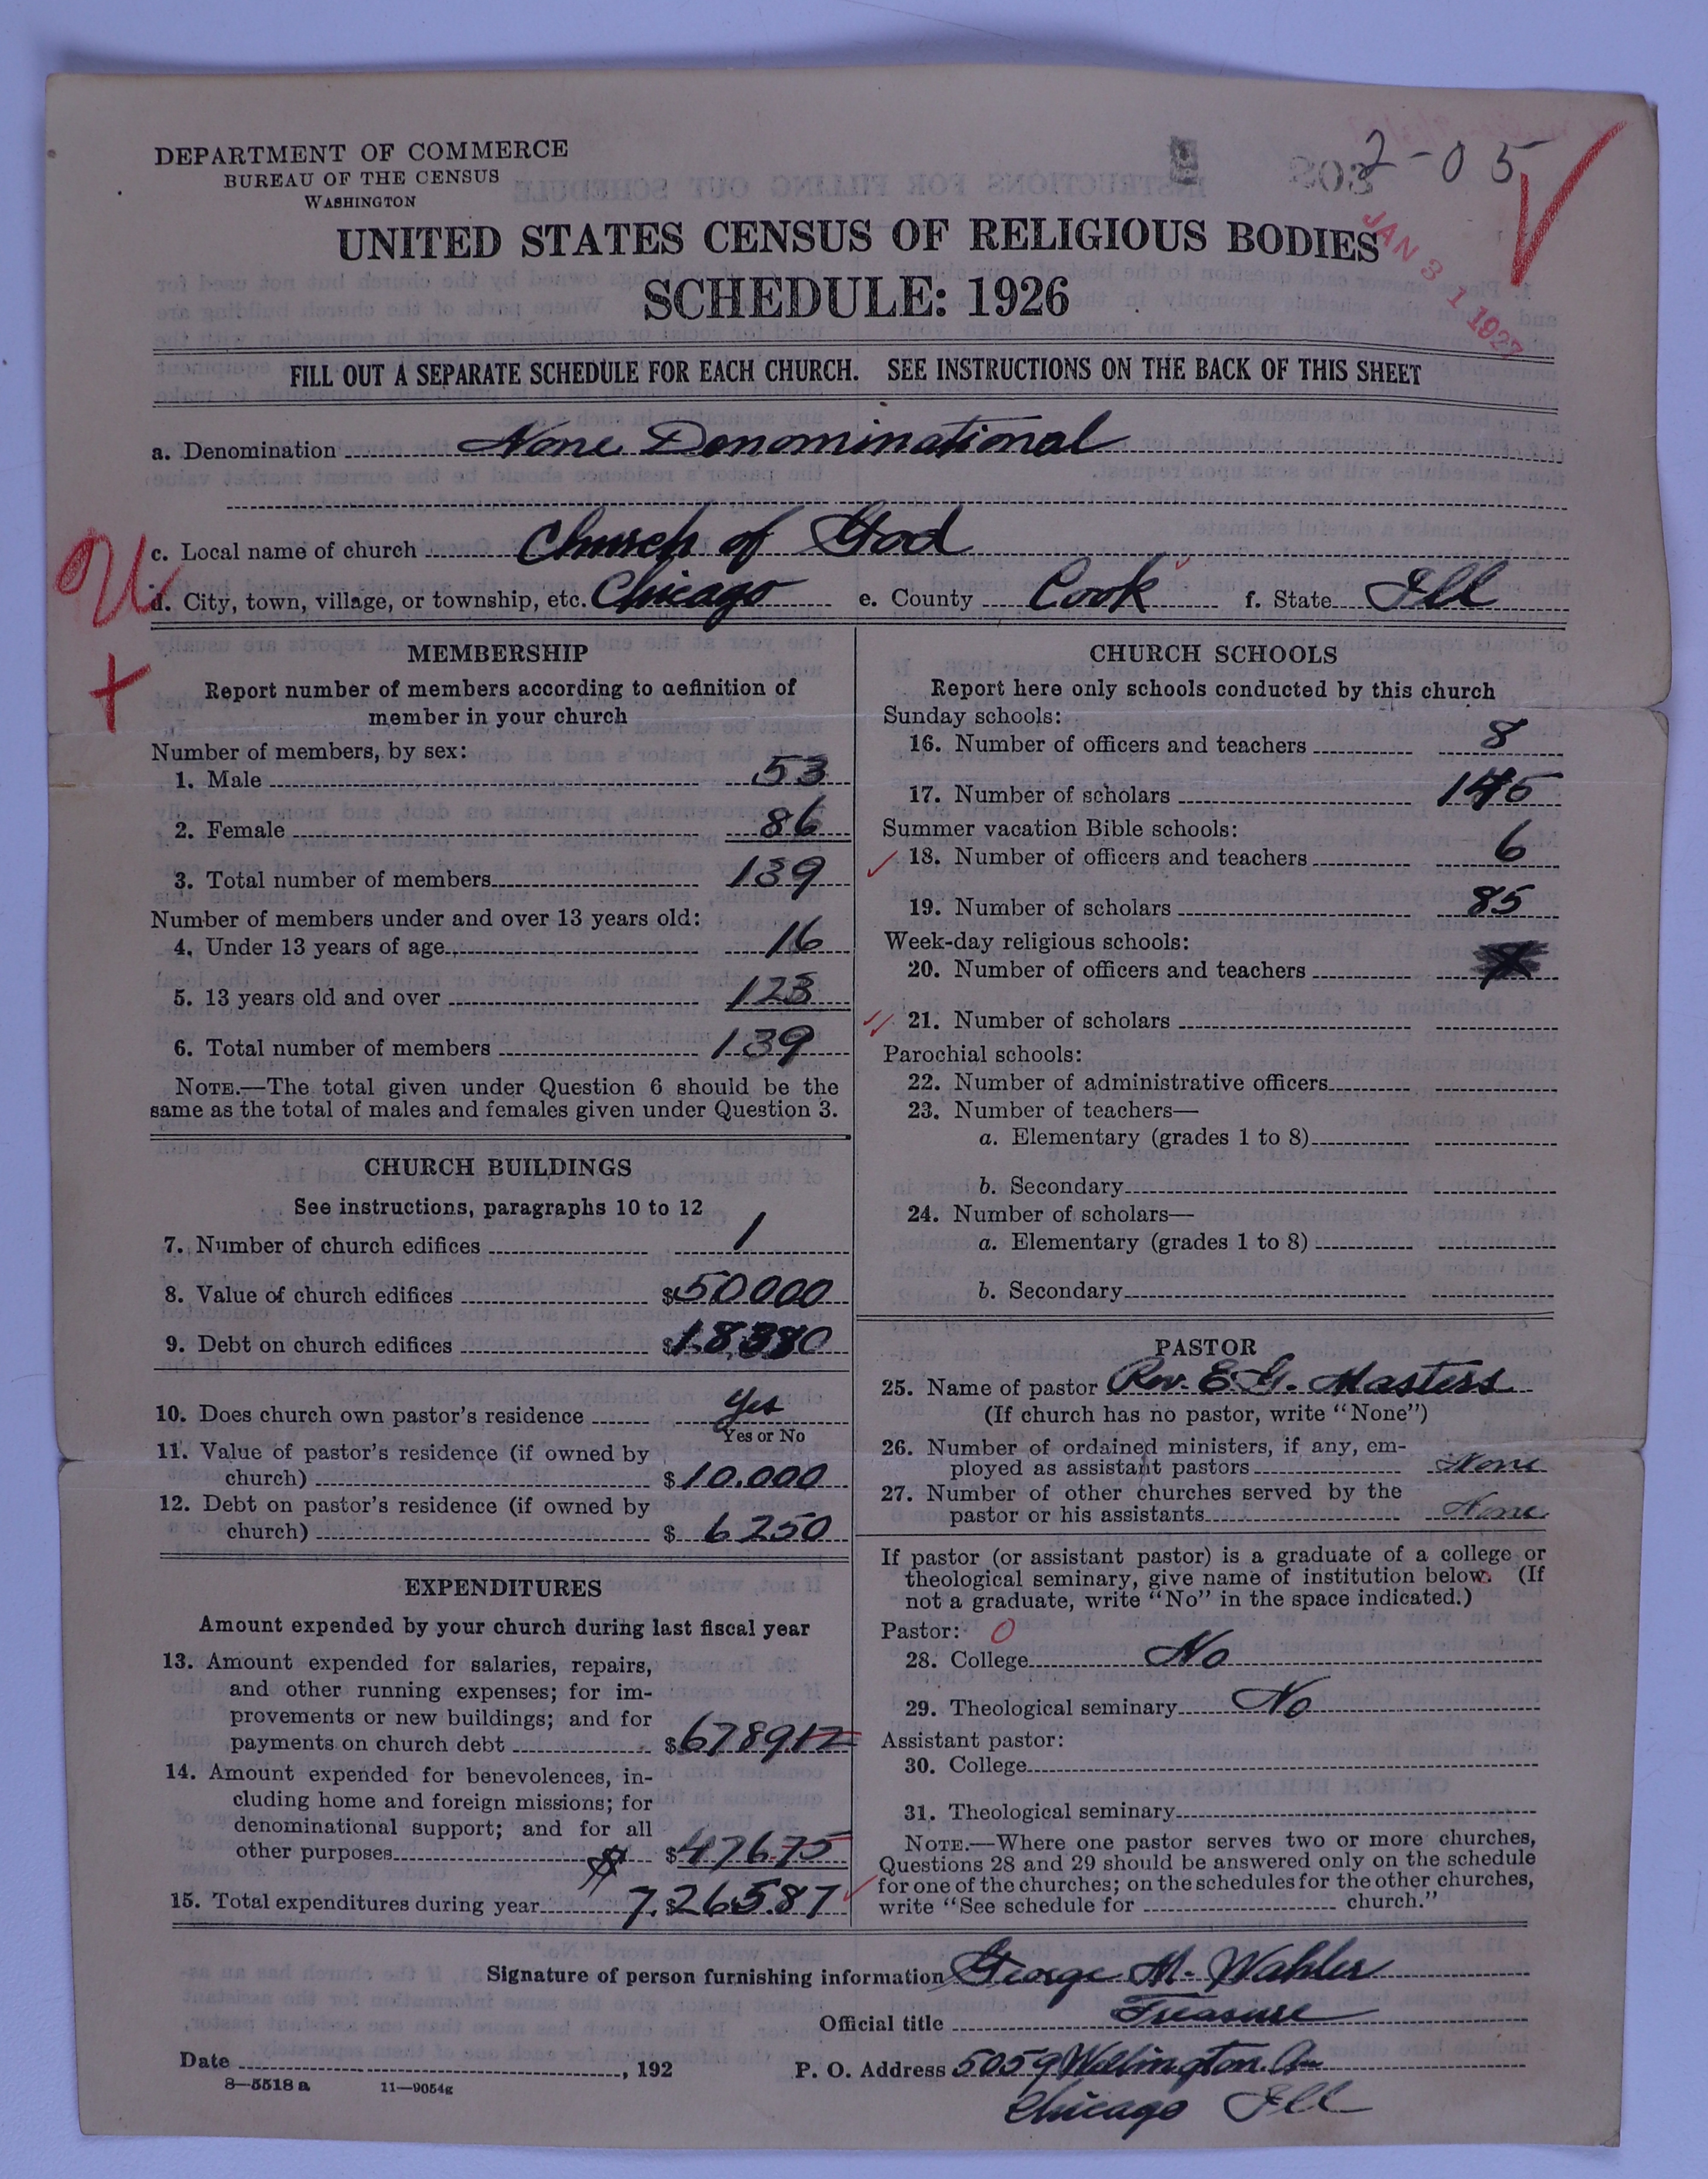 2-05
803
DEPARTMENT OF COMMERCE
BUREAU OF THE CENSUS
WASHINGTON
JAN 31 1927
UNITED STATES CENSUS OF RELIGIOUS BODIES
SCHEDULE: 1926
FILL OUT A SEPARATE SCHEDULE FOR EACH CHURCH. SEE INSTRUCTIONS ON THE BACK OF THIS SHEET
a. Denomination None Denominational
c. Local name of church Church of God
d. City, town, village, or township, etc. Chicago e. County Cook f. State Ill
MEMBERSHIP
Report number of members according to definition of
member in your church
Number of members, by sex:
1. Male 53
2. Female 86
3. Total number of members 139
Number of members under and over 13 years old:
4. Under 13 years of age 16
5. 13 years old and over 123
6. Total number of members 139
NOTE.—The total given under Question 6 should be the
same as the total of males and females given under Question 3.
CHURCH BUILDINGS
See instructions, paragraphs 10 to 12
7. Number of church edifices 1
8. Value of church edifices $50000
9. Debt on church edifices $18,380
10. Does church own pastor's residence Yes
Yes or No
11. Value of pastor's residence (if owned by
church) $10.000
12. Debt on pastor's residence (if owned by
church) $6250
EXPENDITURES
Amount expended by your church during last fiscal year
13. Amount expended for salaries, repairs,
and other running expenses; for im-
provements or new buildings; and for
payments on church debt $678912
14. Amount expended for benevolences, in-
cluding home and foreign missions; for
denominational support; and for all
other purposes $ $476.75
15. Total expenditures during year 7.$265.87
CHURCH SCHOOLS
Report here only schools conducted by this church
Sunday schools:
16. Number of officers and teachers 8
17. Number of scholars 145
Summer vacation Bible schools:
18. Number of officers and teachers 6
19. Number of scholars 85
Week-day religious schools:
20. Number of officers and teachers
21. Number of scholars
Parochial schools:
22. Number of administrative officers
23. Number of teachers—
a. Elementary (grades 1 to 8)
b. Secondary
24. Number of scholars—
a. Elementary (grades 1 to 8)
b. Secondary
PASTOR
25. Name of pastor Rev. E. G. Masters
(If church has no pastor, write "None")
26. Number of ordained ministers, if any, em-
ployed as assistant pastors None
27. Number of other churches served by the
pastor or his assistants None
If pastor (or assistant pastor) is a graduate of a college or
theological seminary, give name of institution below. (If
not a graduate, write "No" in the space indicated.)
Pastor: 0
28. College No
29. Theological seminary No
Assistant pastor:
30. College
31. Theological seminary
NOTE.—Where one pastor serves two or more churches,
Questions 28 and 29 should be answered only on the schedule
for one of the churches; on the schedules for the other churches,
write "See schedule for church."
Signature of person furnishing information George M. Wahler
Official title Treasure
Date , 192 P. O. Address 5059 Wellington. Av
8—5518 a 11—9054g Chicago Ill